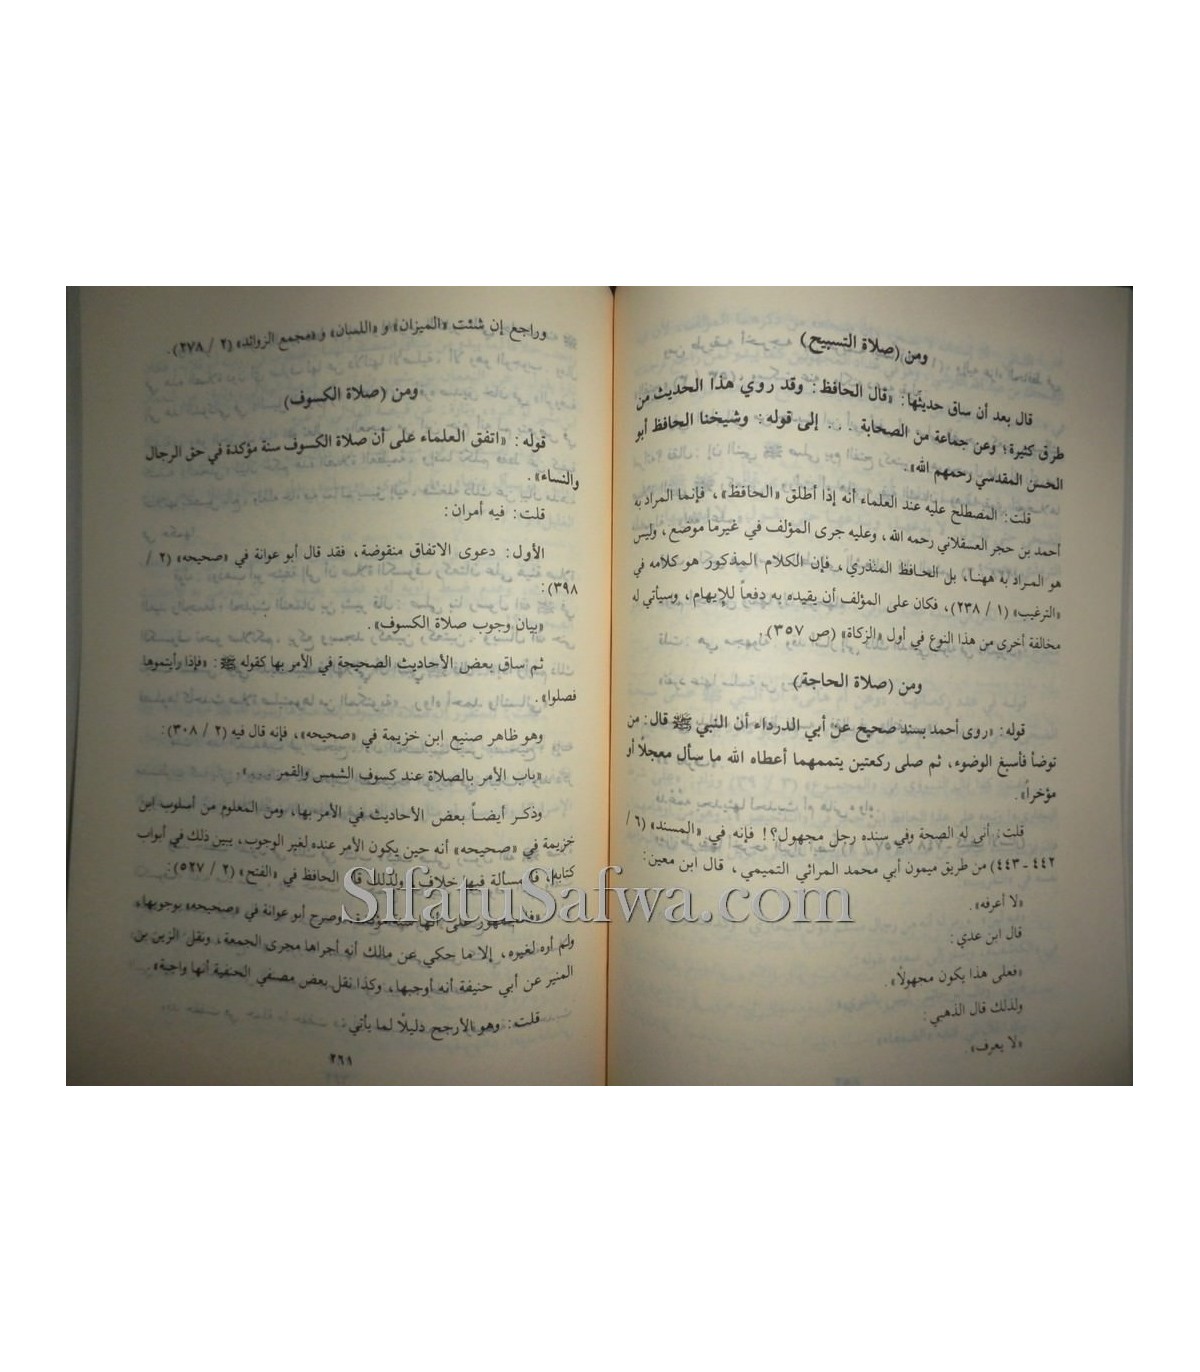 ومن (صلاة التسبيح)
قال بعد أن ساق حديثها: «قال الحافظ: وقد روي هذا الحديث من
طرق كثيرة؛ وعن جماعة من الصحابة . . . إلى قوله: وشيخنا الحافظ أبو
الحسن المقدسي رحمهم الله».
قلت: المصطلح عليه عند العلماء أنه إذا أطلق «الحافظ»، فإنما المراد به
أحمد بن حجر العسقلاني رحمه الله، وعليه جرى المؤلف في غير ما موضع، وليس
هو المراد به ههنا، بل الحافظ المنذري، فإن الكلام المذكور هو كلامه في
«الترغيب» (١ / ٢٣٨)، فكان على المؤلف أن يقيده به دفعاً للإيهام، وسيأتي له
مخالفة أخرى من هذا النوع في أول «الزكاة» (ص ٣٥٧).
ومن (صلاة الحاجة)
قوله: «روى أحمد بسند صحيح عن أبي الدرداء أن النبي ﷺ قال: من
توضأ فأسبغ الوضوء، ثم صلى ركعتين يتممهما أعطاه الله ما سأل معجلاً أو
مؤخراً».
قلت: أنى له الصحة وفي سنده رجل مجهول؟! فإنه في «المسند» (٦ /
٤٤٢-٤٤٣) من طريق ميمون أبي محمد المرائي التميمي، قال ابن معين:
«لا أعرفه».
قال ابن عدي:
«فعلى هذا يكون مجهولاً».
ولذلك قال الذهبي:
«لا يعرف».
وراجع إن شئت «الميزان» و «اللسان» و «مجمع الزوائد» (٢ / ٢٧٨).
ومن (صلاة الكسوف)
قوله: «اتفق العلماء على أن صلاة الكسوف سنة مؤكدة في حق الرجال
والنساء».
قلت: فيه أمران:
الأول: دعوى الاتفاق منقوضة، فقد قال أبو عوانة في «صحيحه» (٢ /
٣٩٨):
«بيان وجوب صلاة الكسوف».
ثم ساق بعض الأحاديث الصحيحة في الأمر بها كقوله ﷺ: «فإذا رأيتموها
فصلوا».
وهو ظاهر صنيع ابن خزيمة في «صحيحه»، فإنه قال فيه (٢ / ٣٠٨):
«باب الأمر بالصلاة عند كسوف الشمس والقمر . . .».
وذكر أيضاً بعض الأحاديث في الأمر بها، ومن المعلوم من أسلوب ابن
خزيمة في «صحيحه» أنه حين يكون الأمر عنده لغير الوجوب، يبين ذلك في أبواب
كتابه، فالمسألة فيها خلاف، ولذلك قال الحافظ في «الفتح» (٢ / ٥٢٧):
«فالجمهور على أنها سنة مؤكدة، وصرح أبو عوانة في «صحيحه» بوجوبها،
ولم أره لغيره، إلا ما حكي عن مالك أنه أجراها مجرى الجمعة، ونقل الزين بن
المنير عن أبي حنيفة أنه أوجبها، وكذا نقل بعض مصنفي الحنفية أنها واجبة».
قلت: وهو الأرجح دليلاً لما يأتي:
٢٦١
SifatuSafwa.com